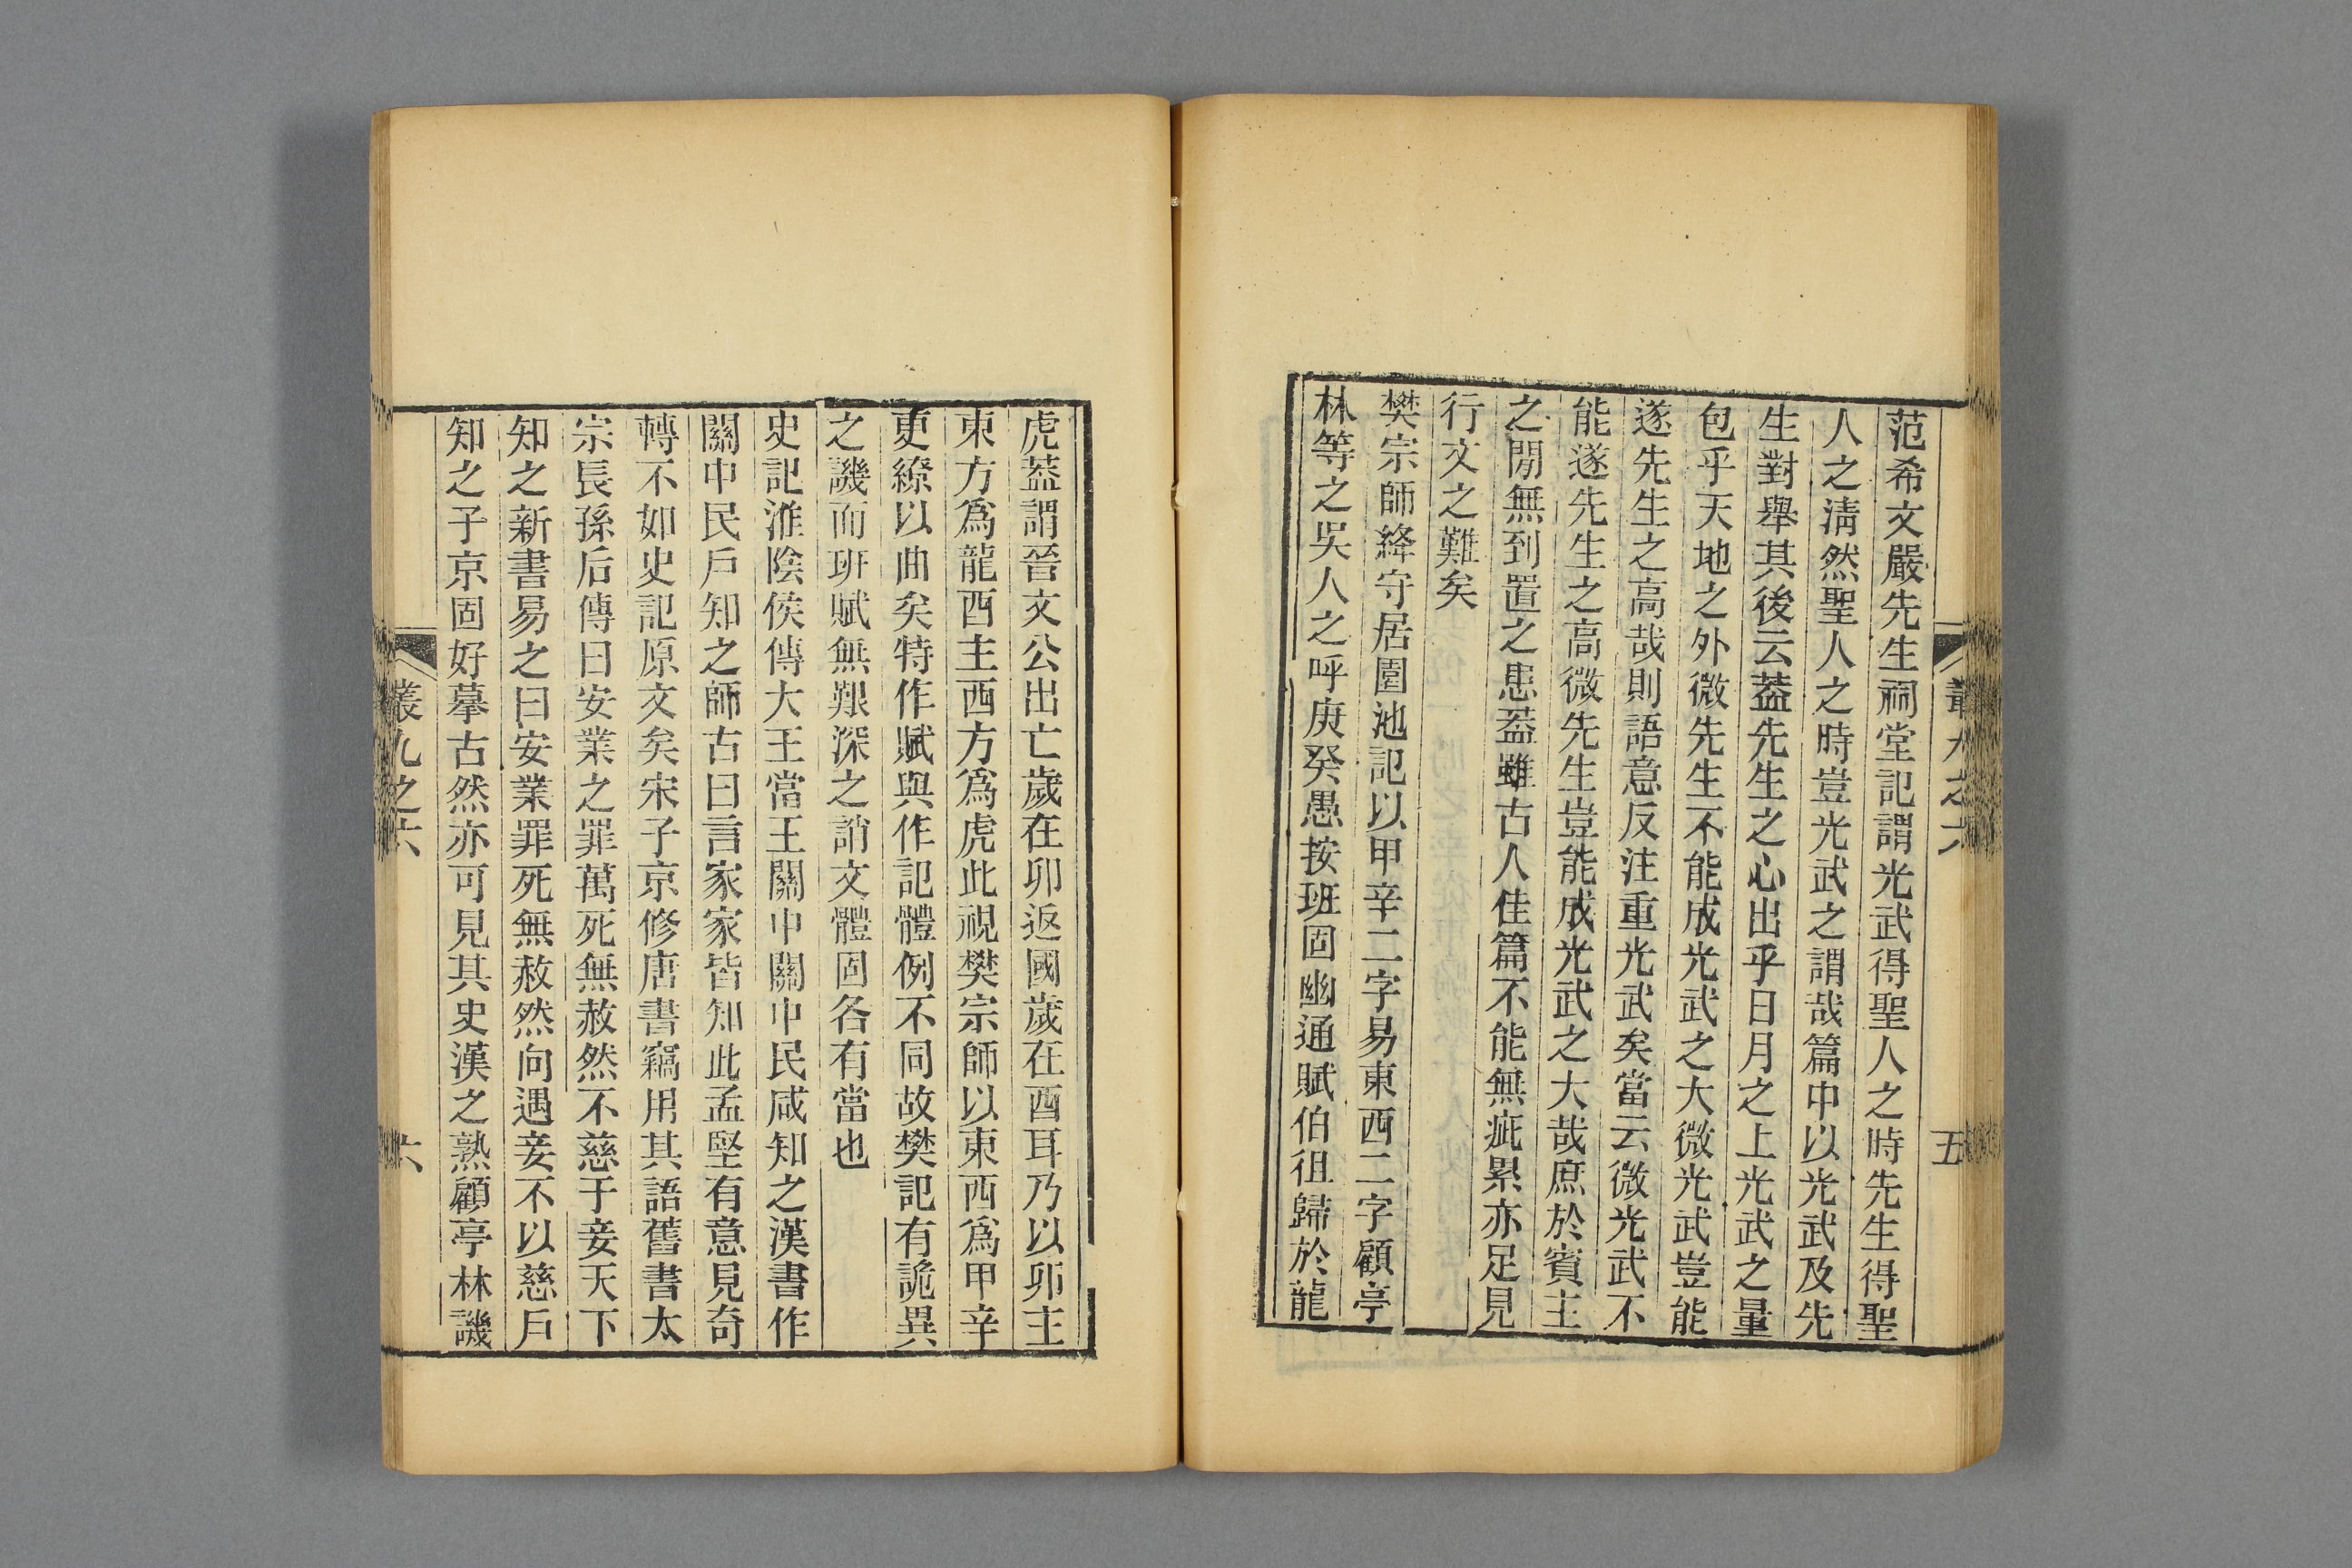 叢九之六
五
范希文嚴先生祠堂記謂光武得聖人之時先生得聖
人之淸然聖人之時豈光武之謂哉篇中以光武及先
生對舉其後云葢先生之心出乎日月之上光武之量
包乎天地之外微先生不能成光武之大微光武豈能
遂先生之高哉則語意反注重光武矣當云微光武不
能遂先生之高微先生豈能成光武之大哉庶於賓主
之閒無到置之患葢雖古人佳篇不能無疵累亦足見
行文之難矣
樊宗師絳守居園池記以甲辛二字易東西二字顧亭
林等之吳人之呼庚癸愚按班固幽通賦伯徂歸於龍
虎葢謂晉文公出亡歲在卯返國歲在酉耳乃以卯主
東方爲龍酉主西方爲虎此視樊宗師以東西爲甲辛
更繚以曲矣特作賦與作記體例不同故樊記有詭異
之譏而班賦無艱深之誚文體固各有當也
史記淮陰侯傳大王當王關中關中民咸知之漢書作
關中民戶知之師古曰言家家皆知此孟堅有意見奇
轉不如史記原文矣宋子京修唐書竊用其語舊書太
宗長孫后傳曰安業之罪萬死無赦然不慈于妾天下
知之新書易之曰安業罪死無赦然向遇妾不以慈戶
知之子京固好摹古然亦可見其史漢之熟顧亭林譏
叢九之六
六